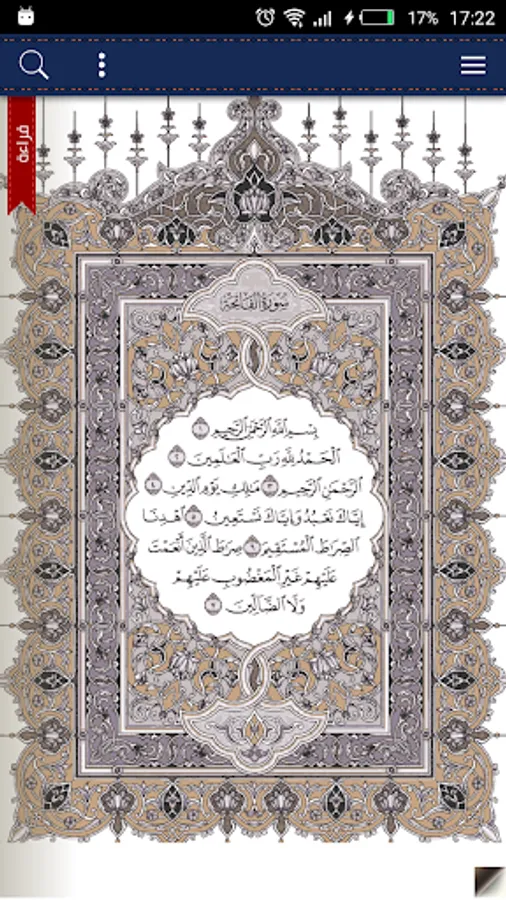 17% 17:22
قراءة
سورة الفاتحة
بِسْمِ ٱللَّهِ ٱلرَّحْمَٰنِ ٱلرَّحِيمِ ١
ٱلْحَمْدُ لِلَّهِ رَبِّ ٱلْعَٰلَمِينَ ٢
ٱلرَّحْمَٰنِ ٱلرَّحِيمِ ٣ مَٰلِكِ يَوْمِ ٱلدِّينِ ٤
إِيَّاكَ نَعْبُدُ وَإِيَّاكَ نَسْتَعِينُ ٥ ٱهْدِنَا
ٱلصِّرَٰطَ ٱلْمُسْتَقِيمَ ٦ صِرَٰطَ ٱلَّذِينَ أَنْعَمْتَ
عَلَيْهِمْ غَيْرِ ٱلْمَغْضُوبِ عَلَيْهِمْ
وَلَا ٱلضَّآلِّينَ ٧